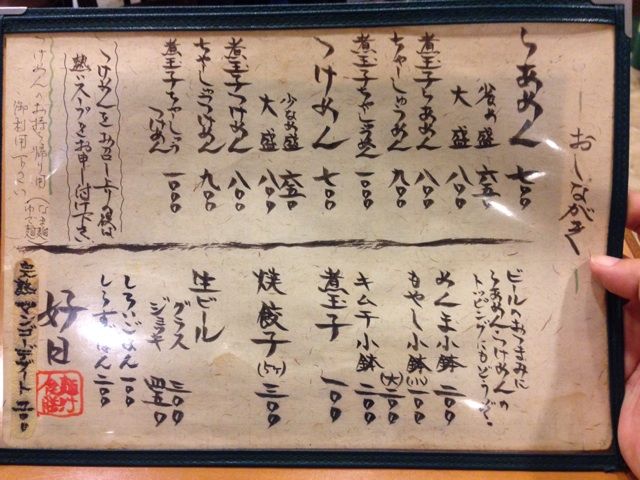 おしながき
らあめん 七〇〇
少なめ盛 六五〇
大盛 八〇〇
煮玉子らあめん 八〇〇
ちゃーしゅうめん 九〇〇
煮玉子ちゃーしゅうめん 一〇〇〇
つけめん 七〇〇
少なめ盛 六五〇
大盛 八〇〇
煮玉子つけめん 八〇〇
ちゃーしゅうつけめん 九〇〇
煮玉子ちゃーしゅう
つけめん 一〇〇〇
つけめんをお召し上りの後は
熱いスープをお申し付け下さい
つけめんのお持ち帰り用(なま麺 ゆで麺)
御利用下さい
ビールのおつまみに
らあめん、つけめんの
トッピングにもどうぞ。
めんま小鉢 一〇〇
もやし小鉢(小)一〇〇
(大)二〇〇
キムチ小鉢 一〇〇
煮玉子 一〇〇
焼餃子(5ヶ) 三〇〇
生ビール
グラス 三〇〇
ジョッキ 四五〇
しろいごはん 一〇〇
しらすごはん 二〇〇
好日
完熟マンゴージェラート 二〇〇